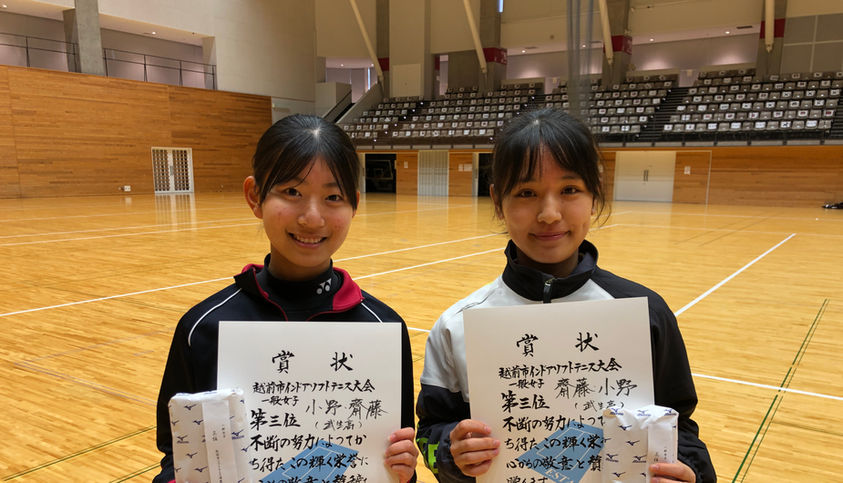 賞状
越前市インドアソフトテニス大会
一般女子
小野・齋藤
第三位
(武生高)
不断の努力によってか
ち得たこの輝く栄誉に
心からの敬意と賛
YONEX
賞状
越前市インドアソフトテニス大会
一般女子
齋藤・小野
第三位
(武生高)
不断の努力によってか
ち得たこの輝く栄
心からの敬意と賛
贈ります